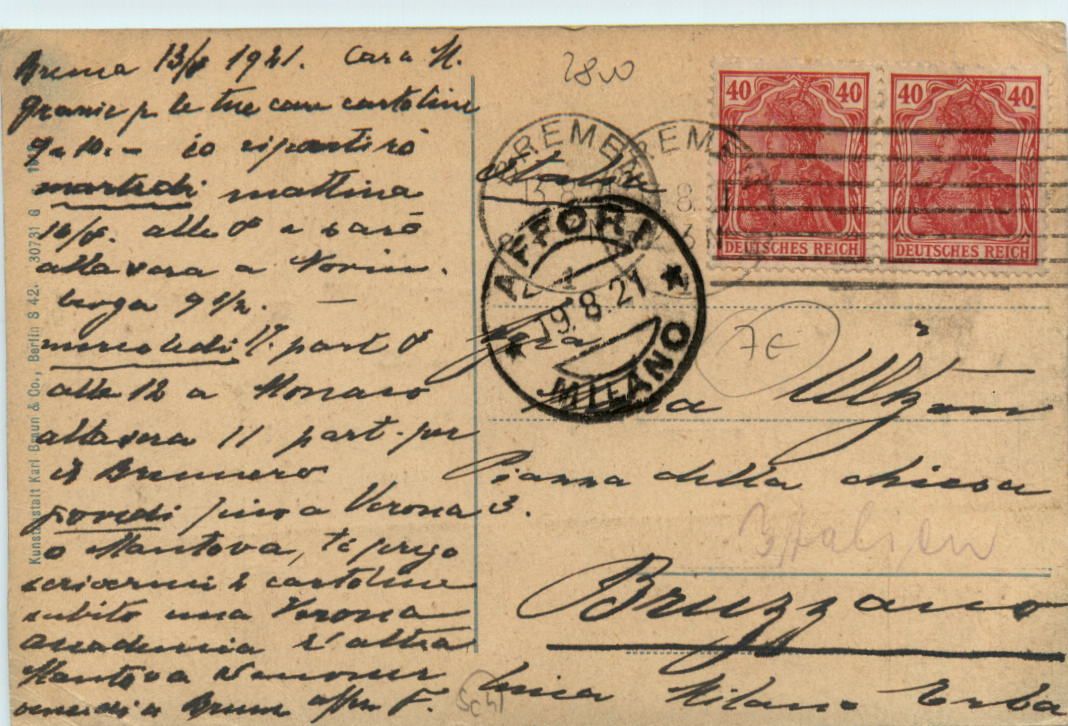 Brema 13/8 1921. Cara M.
grazie p. le tue care cartoline
9 e 10. — io ripartirò
martedi mattina
16/8. alle 8 e sarò
alla sera a Norim-
berga 9 1/2. —
mercoledi 17. part 8
alle 12 a Monaco
alla sera 11 part. per
il Brennero
giovedi fino a Verona
o Mantova, te prego
scrivermi 2 cartoline
subito una Verona
l'altra
Mantova
venerdi a F.
Kunstanstalt Karl Braun & Co., Berlin S 42. 30731 G
2800
40 40
DEUTSCHES REICH
40 40
DEUTSCHES REICH
BREMEN
13.8.
BREMEN
8
Italia
AFFORI
1
19.8.21
MILANO
7E
Ulkan
Piazza della chiesa
3.
Italien
Bruzzano
Milano Erba